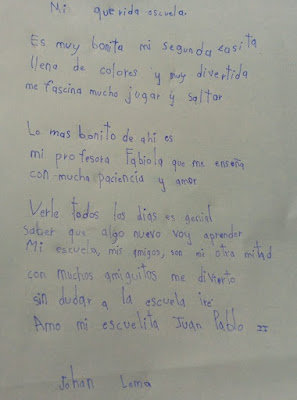 Mi querida escuela.
Es muy bonita mi segunda casita
llena de colores y muy divertida
me fascina mucho jugar y saltar
Lo mas bonito de ahi es
mi profesora Fabiola que me enseña
con mucha paciencia y amor
Verle todos los dias es genial
saber que algo nuevo voy aprender
Mi escuela, mis amigos, son mi otra mitad
con muchos amiguitos me divierto
sin dudar a la escuela iré
Amo mi escuelita Juan Pablo II
Johan Lema